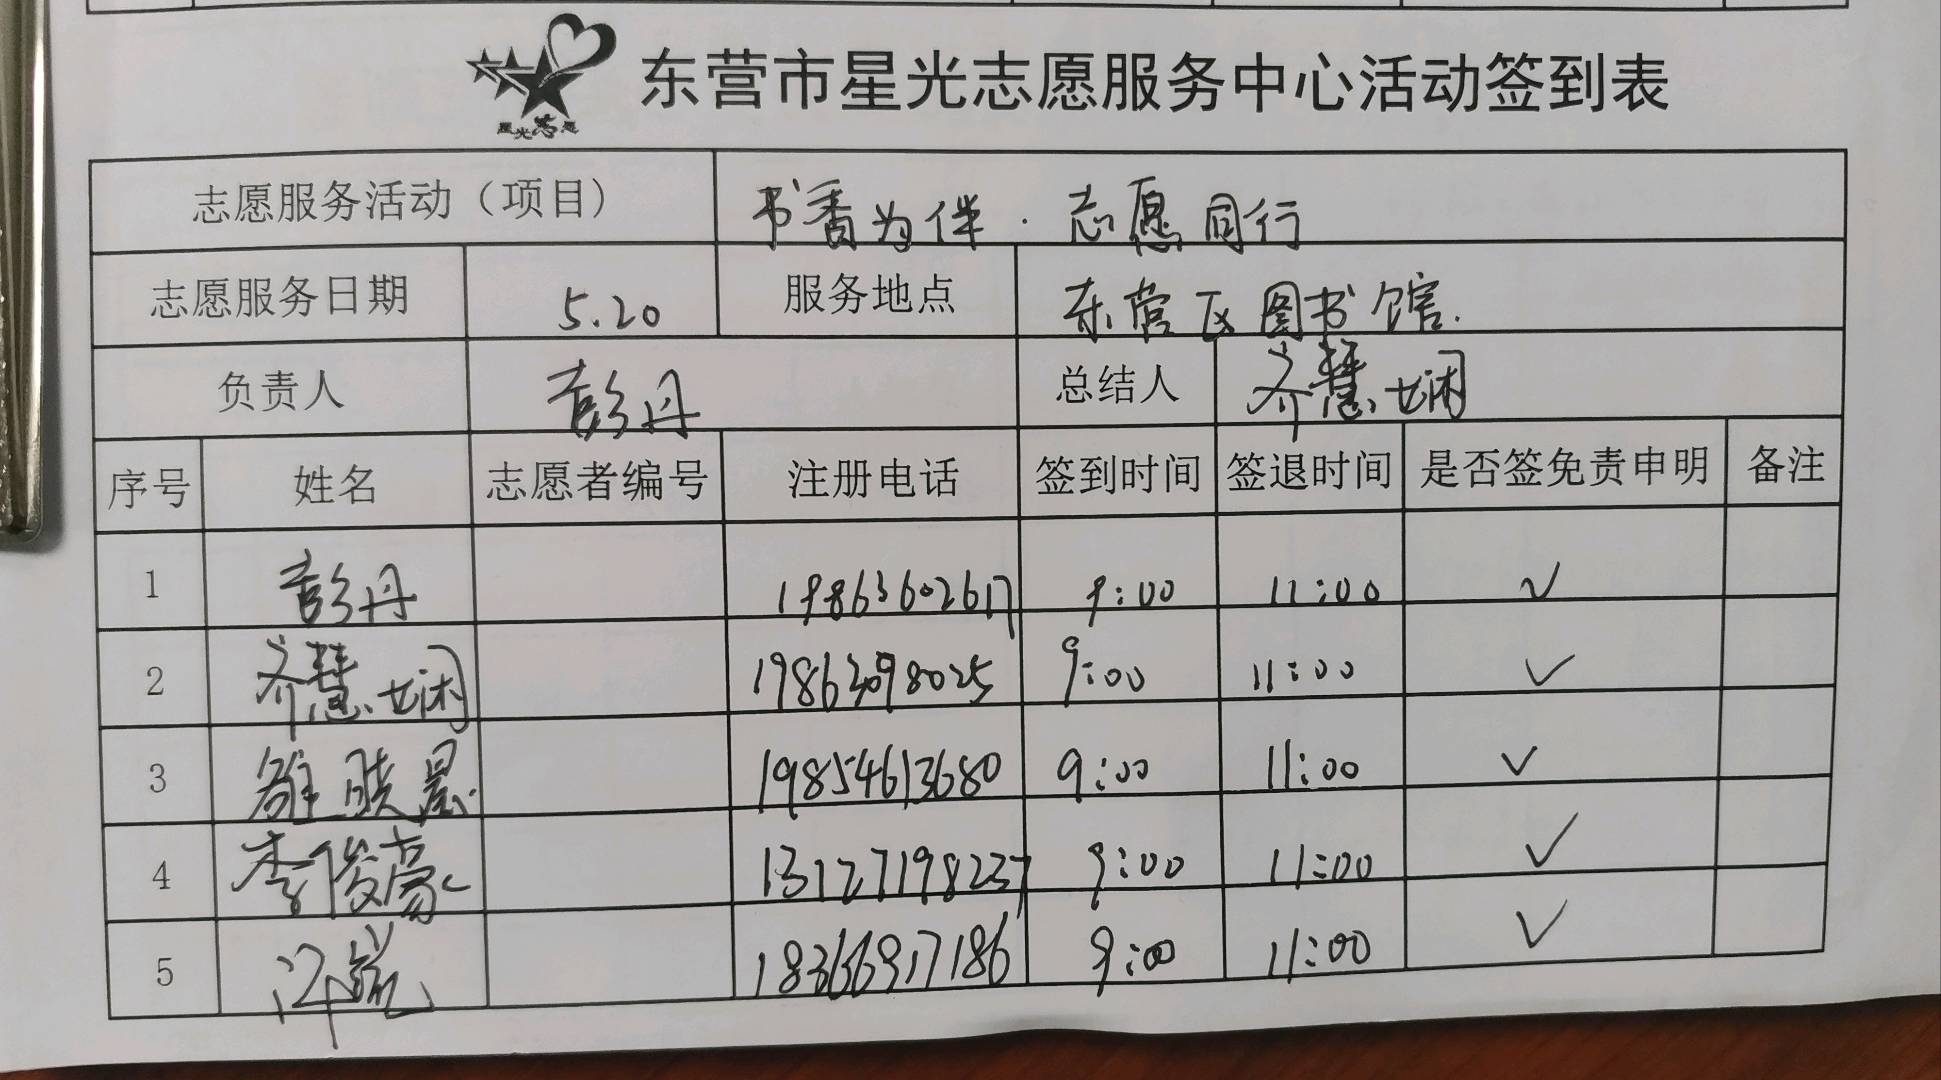 星光志愿
东营市星光志愿服务中心活动签到表
志愿服务活动（项目） 书香为伴·志愿同行
志愿服务日期 5.20 服务地点 东营区图书馆.
负责人 彭丹 总结人 齐慧娴
序号 姓名 志愿者编号 注册电话 签到时间 签退时间 是否签免责申明 备注
1 彭丹 19863602617 9:00 11:00 ✓
2 齐慧娴 19863098025 9:00 11:00 ✓
3 晨 19854613680 9:00 11:00 ✓
4 李俊豪 13127198237 9:00 11:00 ✓
5 18366917186 9:00 11:00 ✓